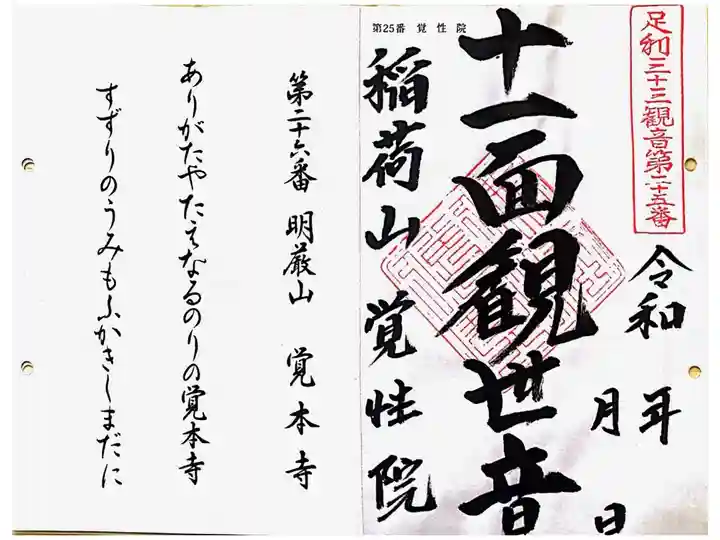 足利三十三観音第二十五番
令和 年
月
日
十一面観世音
第25番 覚性院
稲荷山 覚性院
第二十六番 明厳山 覚本寺
ありがたやたえなるのりの覚本寺
すずりのうみもふかきしまだに